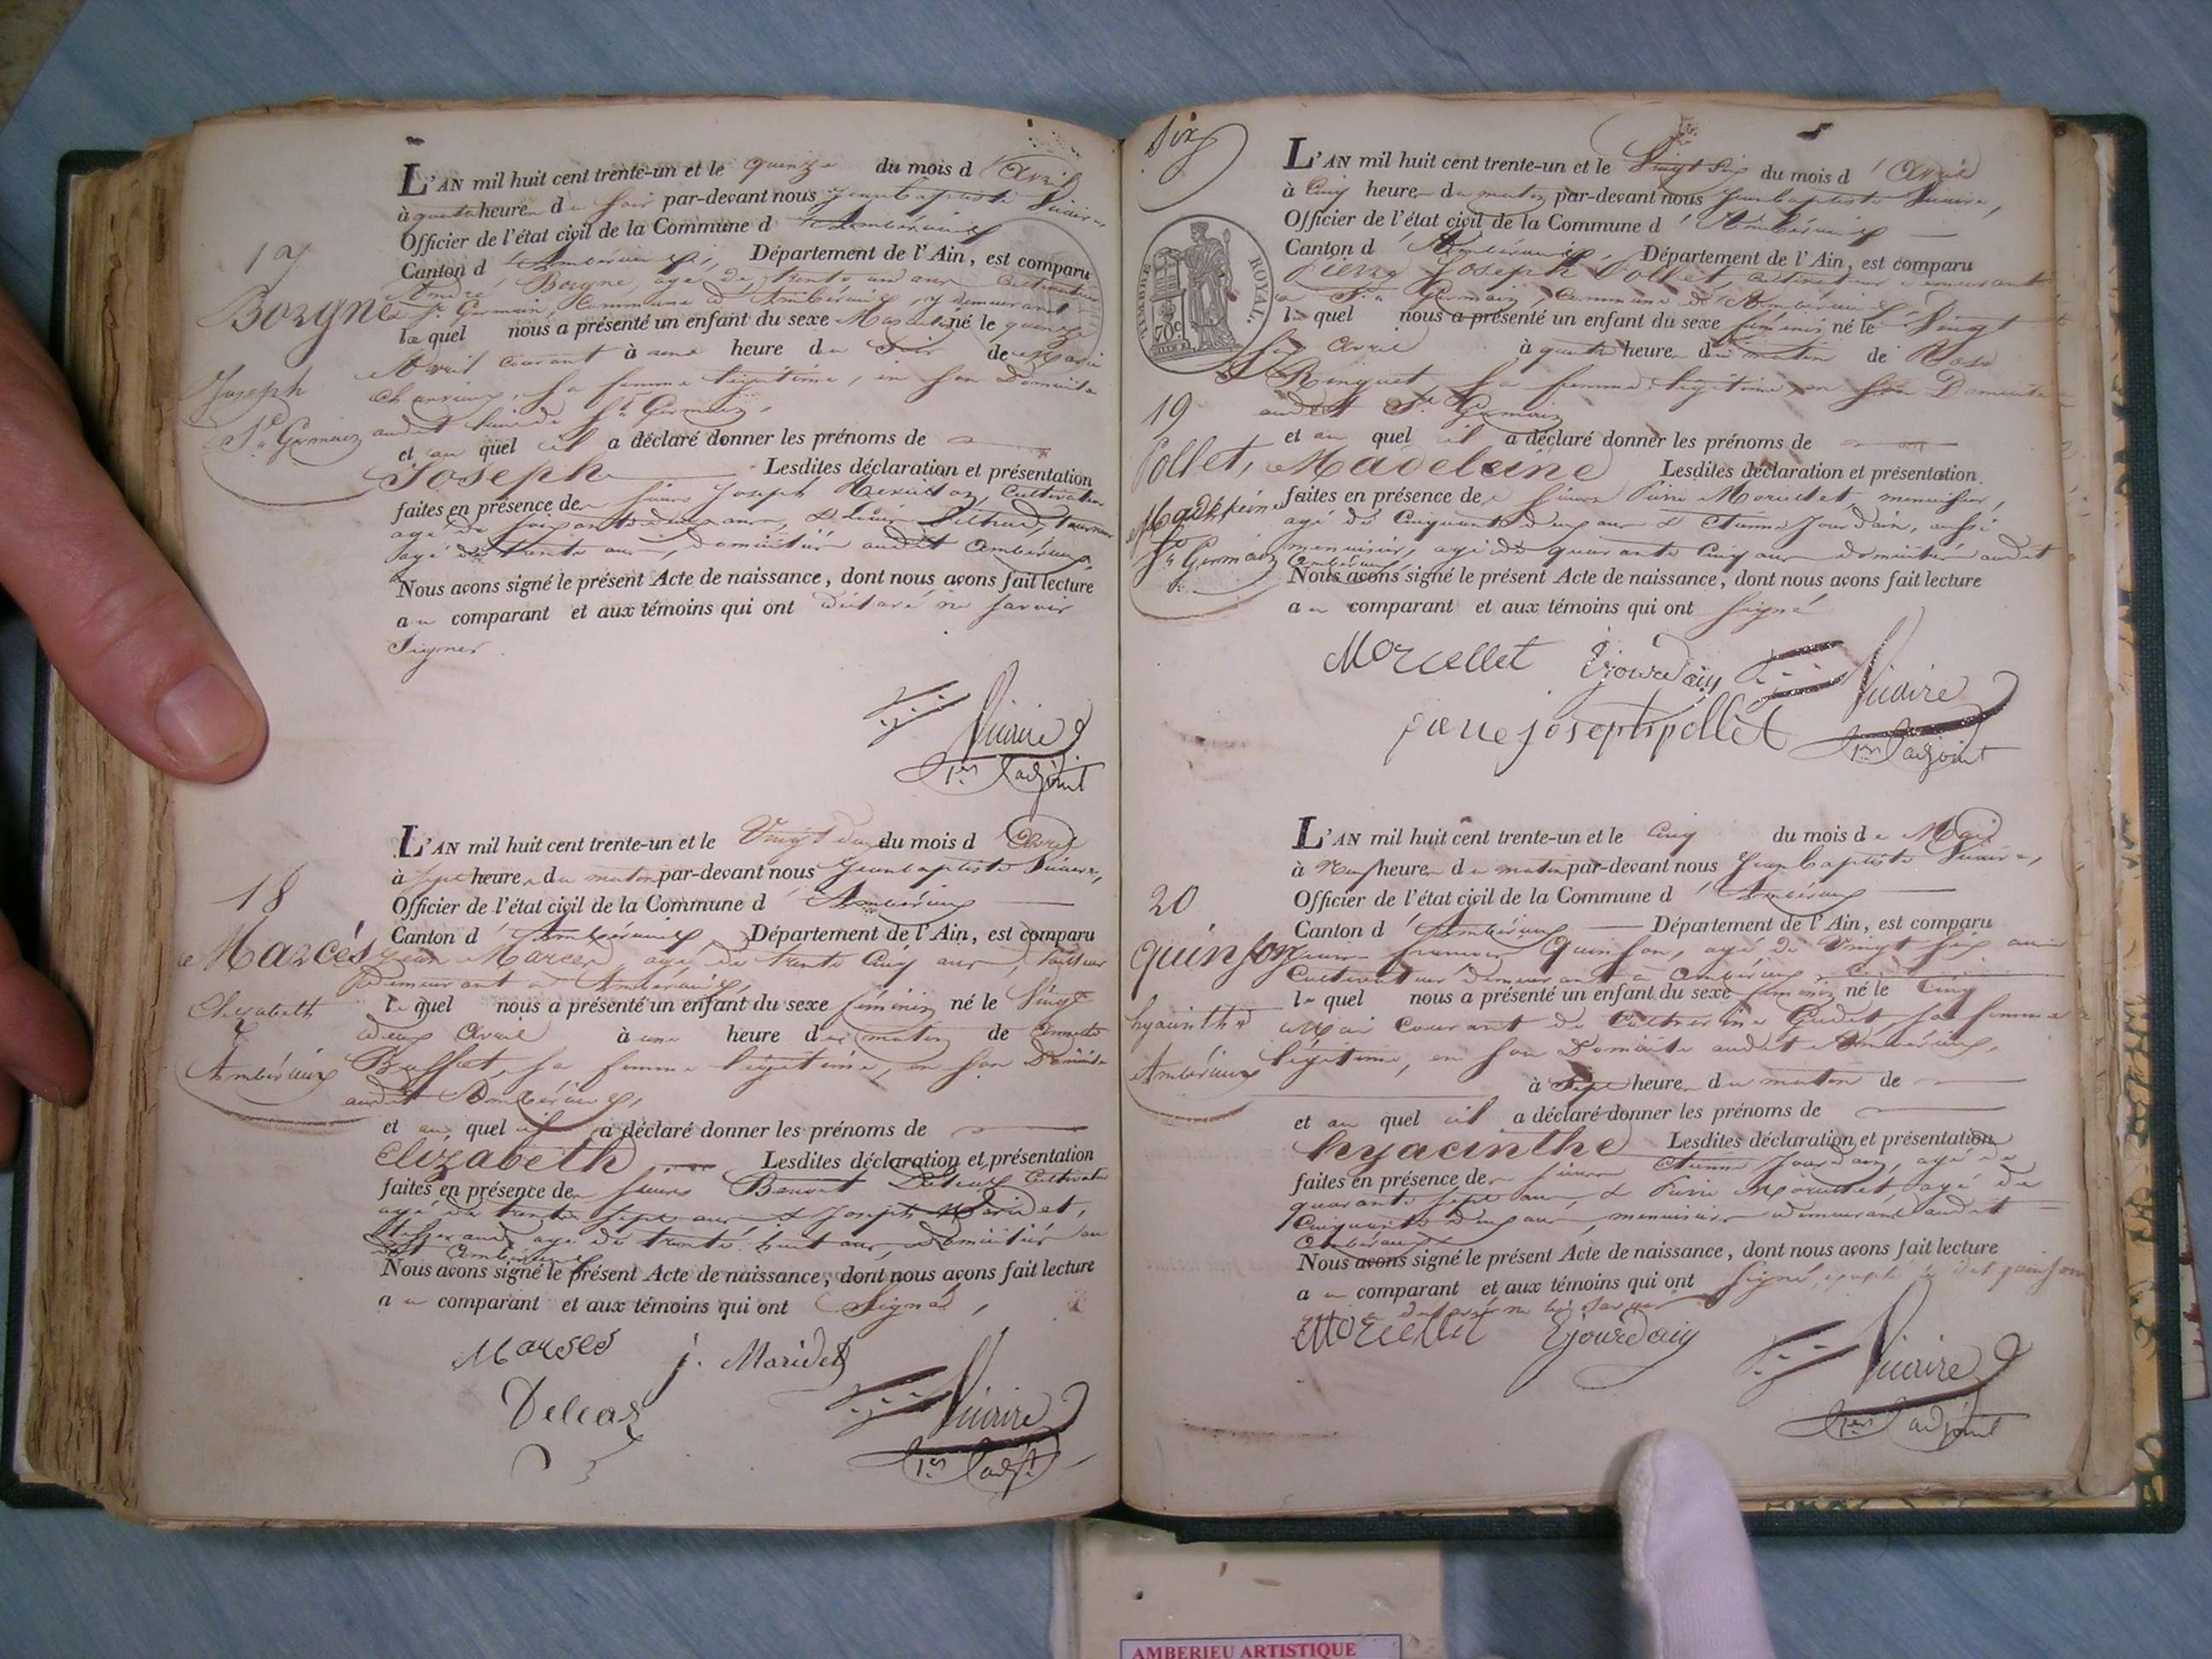 17
Borgne
Joseph
St Germain
L'AN mil huit cent trente-un et le quinze du mois d'Avril
à quatre heures du soir par-devant nous Jean baptiste Vicaire
Officier de l'état civil de la Commune d'Ambérieux
Canton d'Ambérieux, Département de l'Ain, est comparu
André Borgne, agé de trente un ans cultivateur
à St Germain, Commune d'Ambérieux, y demeurant
lequel nous a présenté un enfant du sexe Masculin né le quinze
Avril courant à une heure du soir de Marie
sa femme légitime, en son Domicile
audit lieu de St Germain,
et au quel il a déclaré donner les prénoms de
Joseph Lesdites déclaration et présentation
faites en présence des sieurs Joseph Cultivateur
agé de soixante deux ans, & tourneur
agé de trente ans, domiciliés audit Ambérieux
Nous avons signé le présent Acte de naissance, dont nous avons fait lecture
au comparant et aux témoins qui ont déclaré ne savoir
signer
Vicaire
1er adjoint
18
Marcés
Elizabeth
Ambérieux
L'AN mil huit cent trente-un et le Vingt deux du mois d'Avril
à sept heures du matin par-devant nous Jean baptiste Vicaire,
Officier de l'état civil de la Commune d'Ambérieux
Canton d'Ambérieux, Département de l'Ain, est comparu
Jean Marcés, agé de trente cinq ans,
Demeurant à Ambérieux,
lequel nous a présenté un enfant du sexe féminin né le Vingt
deux Avril à une heure du matin de
Buffet, sa femme légitime, en son Domicile
audit Ambérieux,
et au quel il a déclaré donner les prénoms de
Elizabeth Lesdites déclaration et présentation
faites en présence des sieurs Benoit Cultivateur
agé de trente sept ans & Joseph Maridet,
agé de trente huit ans, domiciliés au
dit Ambérieux
Nous avons signé le présent Acte de naissance, dont nous avons fait lecture
au comparant et aux témoins qui ont Signé,
Marsés j. Maridet
Vicaire
1er adjt
six
TIMBRE ROYAL.
70c
19
Pollet,
Madeleine
St Germain
L'AN mil huit cent trente-un et le Vingt six du mois d'Avril
à Cinq heures du matin par-devant nous Jean baptiste Vicaire,
Officier de l'état civil de la Commune d'Ambérieux
Canton d'Ambérieux, Département de l'Ain, est comparu
Pierre Joseph Pollet, cultivateur demeurant
à St Germain, Commune d'Ambérieux
lequel nous a présenté un enfant du sexe féminin né le Vingt
six Avril à quatre heures du matin de Rose
Ringuet, sa femme légitime en son Domicile
audit St Germain
et au quel il a déclaré donner les prénoms de
Madeleine Lesdites déclaration et présentation
faites en présence des sieurs Pierre Morcellet, menuisier,
agé de Cinquante deux ans & Etienne Jourdain, aussi
menuisier, agé de quarante Cinq ans domiciliés audit
Ambérieux
Nous avons signé le présent Acte de naissance, dont nous avons fait lecture
au comparant et aux témoins qui ont signé
Morcellet Ejourdain
Vicaire
pierre joseph pollet
1er adjoint
20
quinson
hyacinthe
Ambérieux
L'AN mil huit cent trente-un et le Cinq du mois de Mai
à Neuf heures du matin par-devant nous Jean baptiste Vicaire,
Officier de l'état civil de la Commune d'Ambérieux
Canton d'Ambérieux Département de l'Ain, est comparu
francois Quinson, agé de Vingt six ans
Cultivateur demeurant à Ambérieux
lequel nous a présenté un enfant du sexe féminin né le Cinq
Mai courant de Catherine Gudet, sa femme
légitime, en son Domicile audit Ambérieux,
à sept heures du matin de
et au quel il a déclaré donner les prénoms de
hyacinthe Lesdites déclaration et présentation
faites en présence des sieurs Etienne Jourdain, agé de
quarante sept ans, & Pierre Morcellet, agé de
Cinquante deux ans, menuisiers demeurant audit
Ambérieux
Nous avons signé le présent Acte de naissance, dont nous avons fait lecture
au comparant et aux témoins qui ont signé, excepté le dit quinson
Morcellet Ejourdain
Vicaire
1er adjoint
AMBERIEU ARTISTIQUE